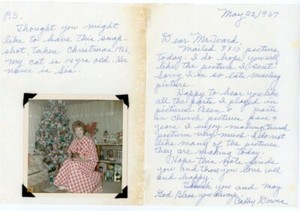 P.S.
Thought you might
like to have this snap-
shot taken Christmas 1966,
my cat is 14 yrs old. Her
name is Sis.
May 22, 1967
Dear Mr. Ward,
Mailed picture
today. I do hope you will
like the picture I sent.
Sorry I'm so late mailing
picture.
Happy to hear you like
all the parts I played in
pictures. Been
in church pictures past
years. I enjoy making
pictures very much. I do not
like many of the pictures
they are making today.
Hope this note finds
you and your love well
and happy.
Thank you and may
God Bless you always
Betty